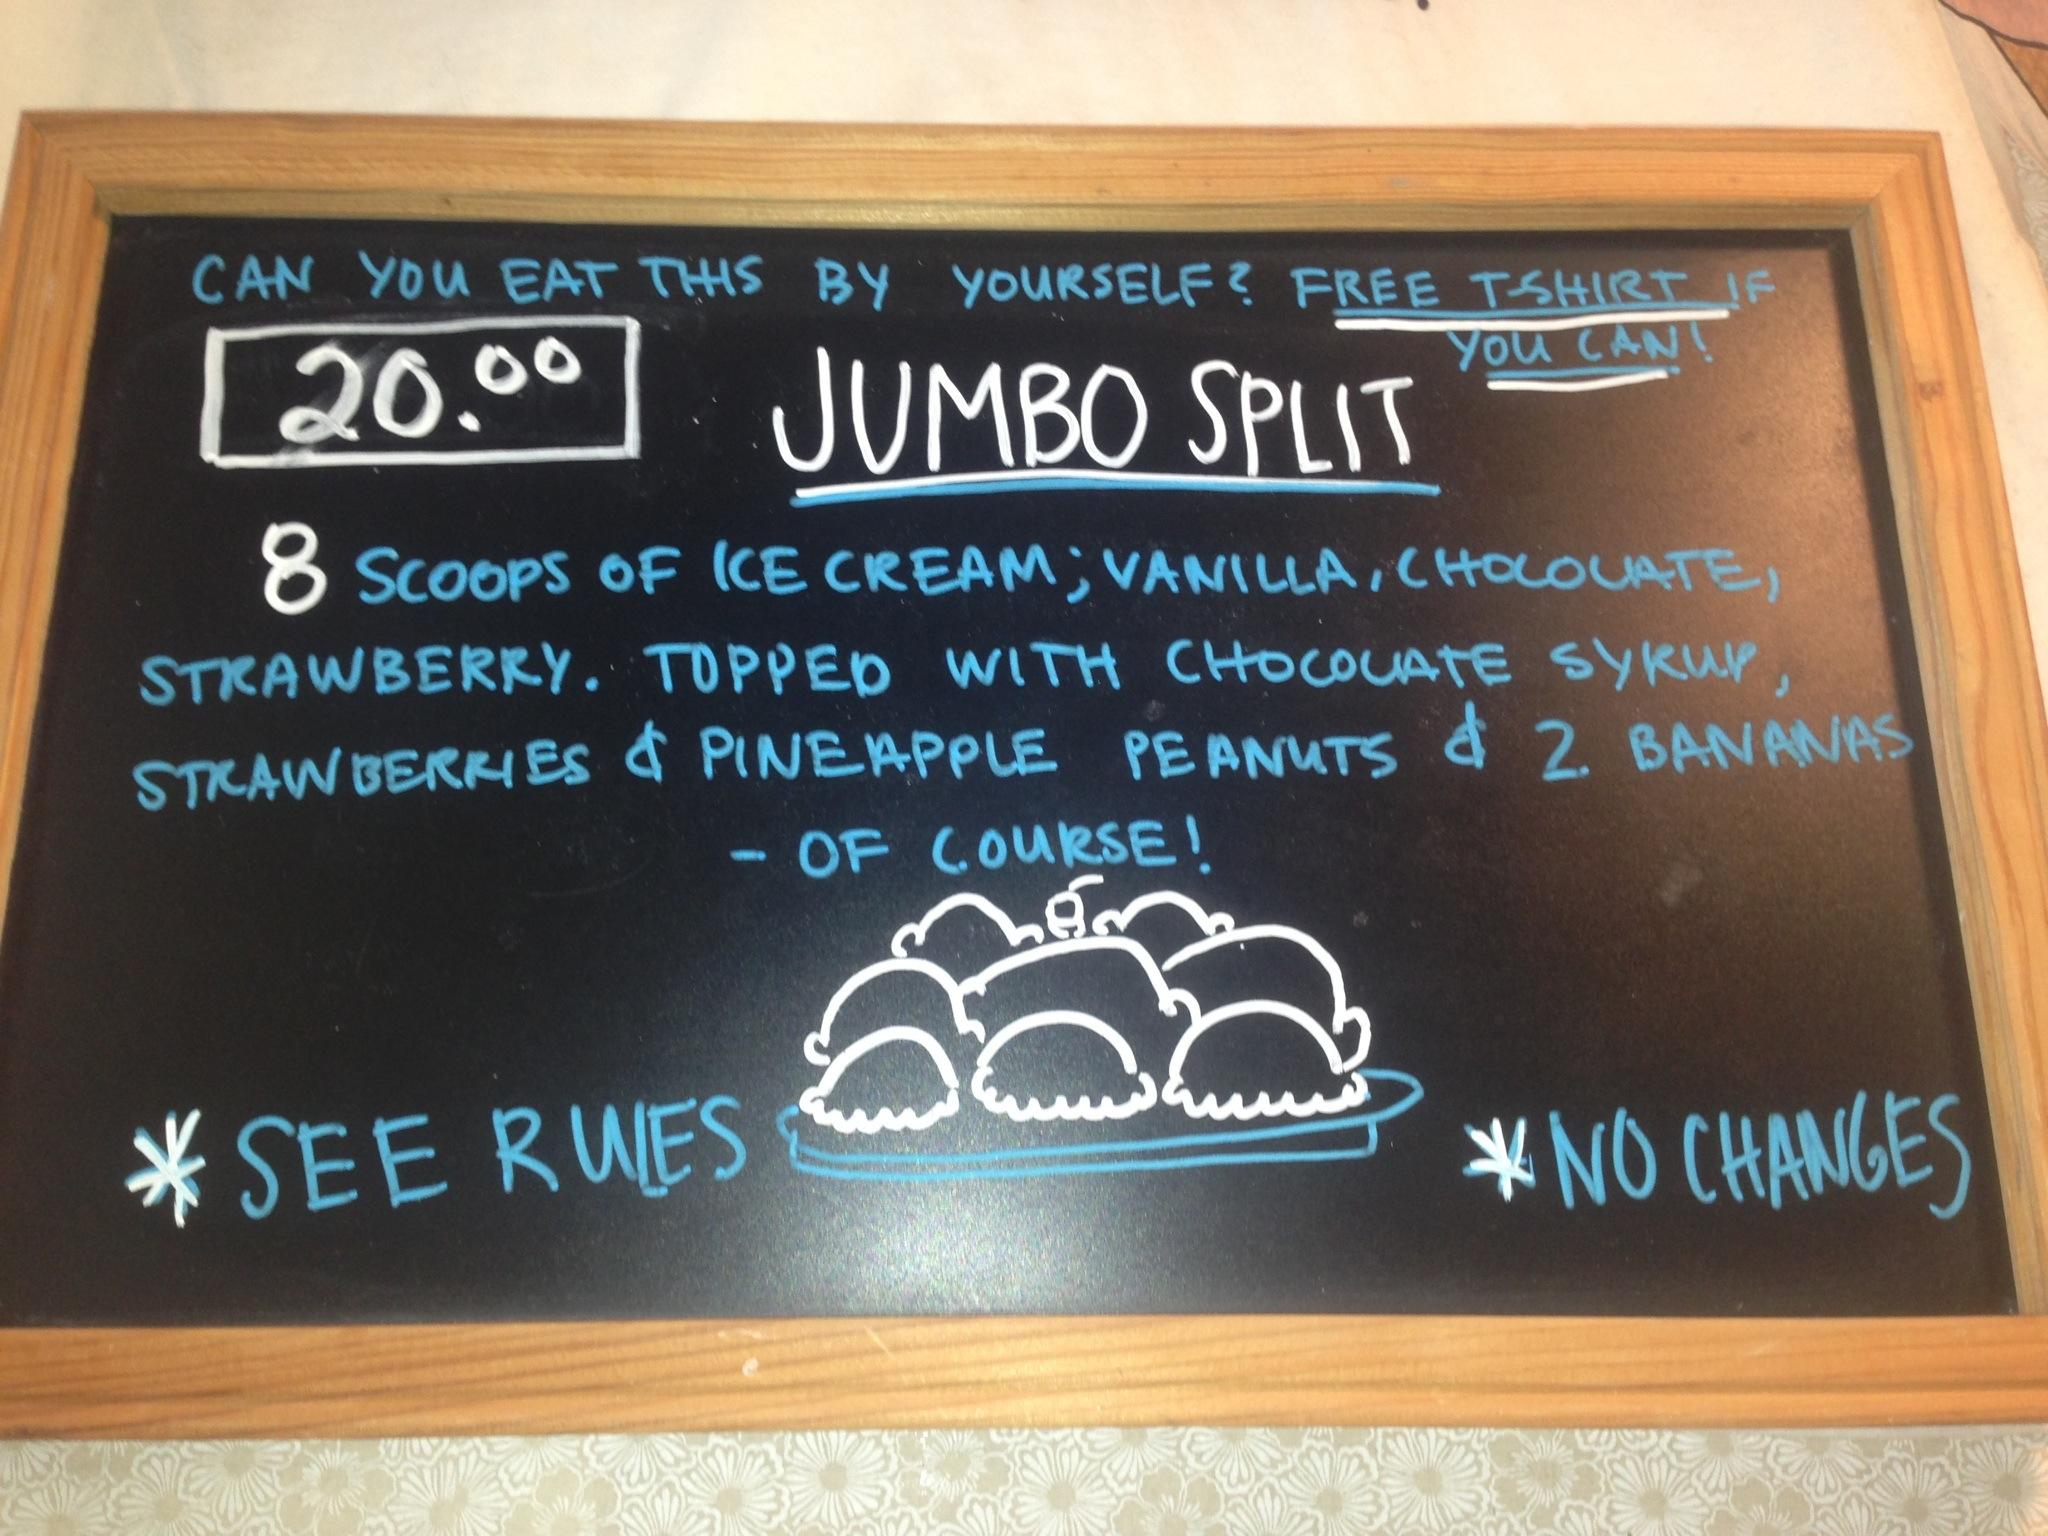 CAN YOU EAT THIS BY YOURSELF? FREE T-SHIRT IF
YOU CAN!
20.00
JUMBO SPLIT
8 SCOOPS OF ICE CREAM; VANILLA, CHOCOLATE,
STRAWBERRY. TOPPED WITH CHOCOLATE SYRUP,
STRAWBERRIES & PINEAPPLE PEANUTS & 2 BANANAS
- OF COURSE!
* SEE RULES
* NO CHANGES